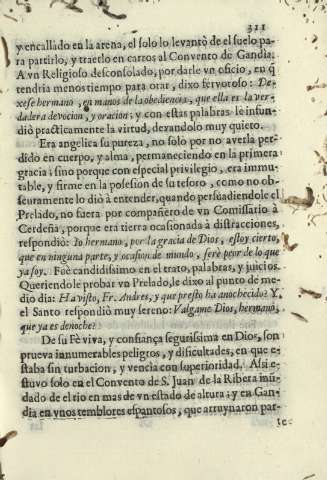 311
y encallado en la arena, el solo lo levantò de el suelo pa-
ra partirlo, y traerlo en carros al Convento de Gandia.
A vn Religioso desconsolado, por darle vn oficio, en q̃
tendria menos tiempo para orar, dixo fervoroso: De-
xese hermano, en manos de la obediencia, que ella es la ver-
dadera devocion, y oracion; y con estas palabras le infun-
diò practicamente la virtud, dexandolo muy quieto.
Era angelica su pureza, no solo por no averla per-
dido en cuerpo, y alma, permaneciendo en la primera
gracia; sino porque con especial privilegio, era immu-
table, y firme en la posesion de su tesoro, como no ob-
scuramente lo diò à entender, quando persuadiendole el
Prelado, no fuera por compañero de vn Comissario à
Cerdeña, porque era tierra ocasionada à distracciones,
respondiò: Io hermano, por la gracia de Dios, estoy cierto,
que en ninguna parte, y ocasion de mundo, serè peor de lo que
ya soy. Foè candidissimo en el trato, palabras, y juicios.
Queriendole probar vn Prelado, le dixo al punto de me-
dio dia: Ha visto, Fr. Andres, y que presto ha anochecido? Y
el Santo respondiò muy sereno: Valgame Dios, hermano,
que ya es de noche?
De su Fè viva, y confiança segurissima en Dios, son
prueva innumerables peligros, y dificultades, en que e-
staba sin turbacion, y vencia con superioridad. Assi e-
stuvo solo en el Convento de S. Juan de la Ribera inũ-
dado de el rio en mas de vn estado de altura; y en Gan-
dia en vnos temblores espantosos, que arruynaron par-
te